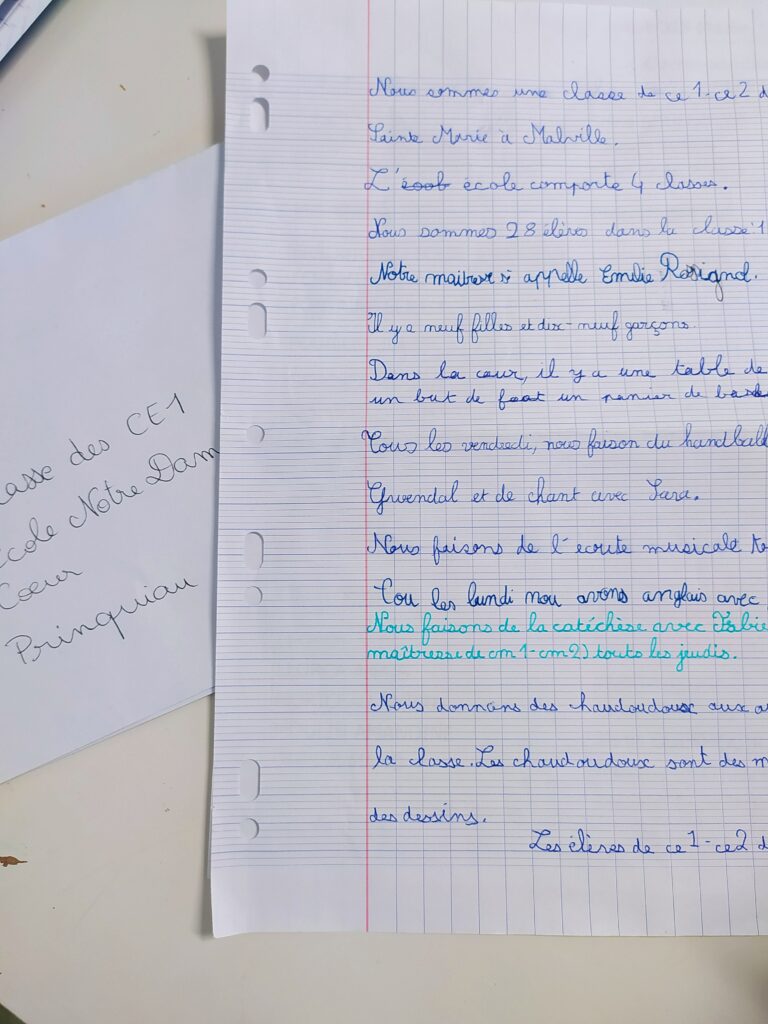 Nous sommes une classe de ce1-ce2 d
Sainte Marie à Malville.
L' école comporte 4 classes.
Nous sommes 28 élèves dans la classe
Notre maitresse s' appelle Emilie Rosignol.
Il y a neuf filles et dix-neuf garçons.
Dans la cour, il y a une table de
un but de foot un panier de bask
Tous les vendredi, nous faison du handball
Gwendal et de chant avec Sara.
Nous faisons de l'ecoute musicale to
Tou les lundi nou avons anglais avec
Nous faisons de la catéchèse avec Fabie
maîtresse de cm1-cm2) touts les jeudis.
Nous donnons des haudoudoux aux a
la classe. Les chaudoudoux sont des m
des dessins.
Les élèves de ce1-ce2 d
lasse des CE1
école Notre Dam
Coeur
Prinquiau